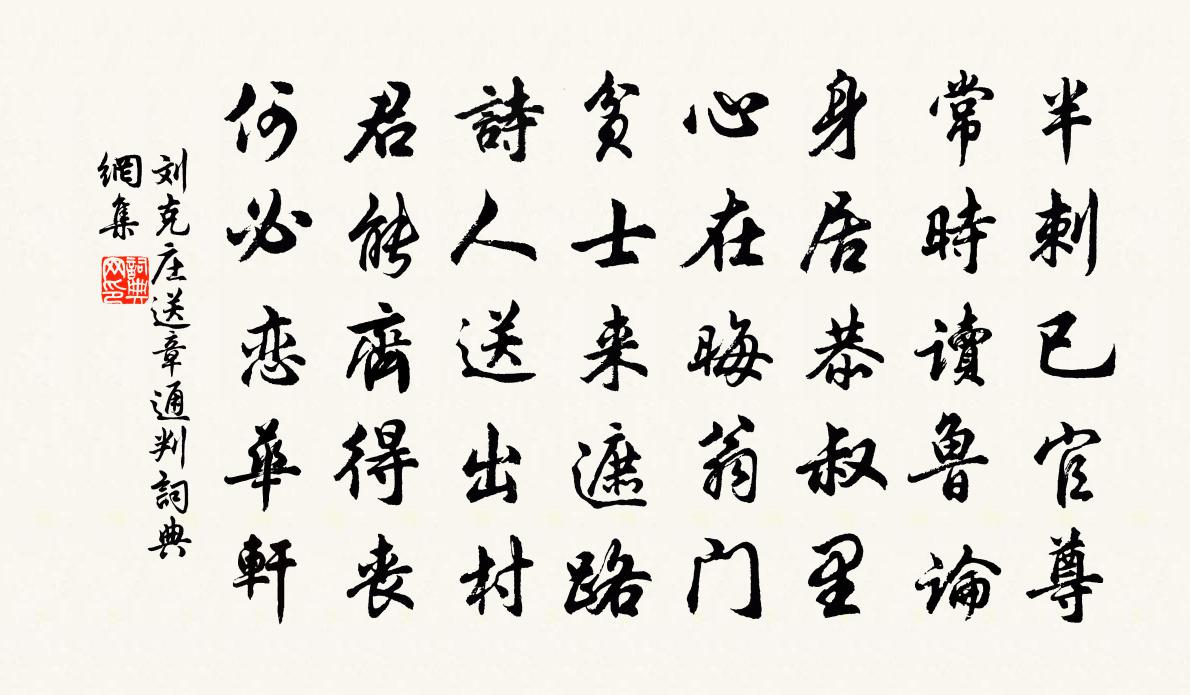 半刺已官尊
常時讀魯論
身居恭叔里
心在晦翁門
貧士来遮路
詩人送出村
君能齊得丧
何必恋華軒
刘克庄送章通判詞典
網集
詞典網印